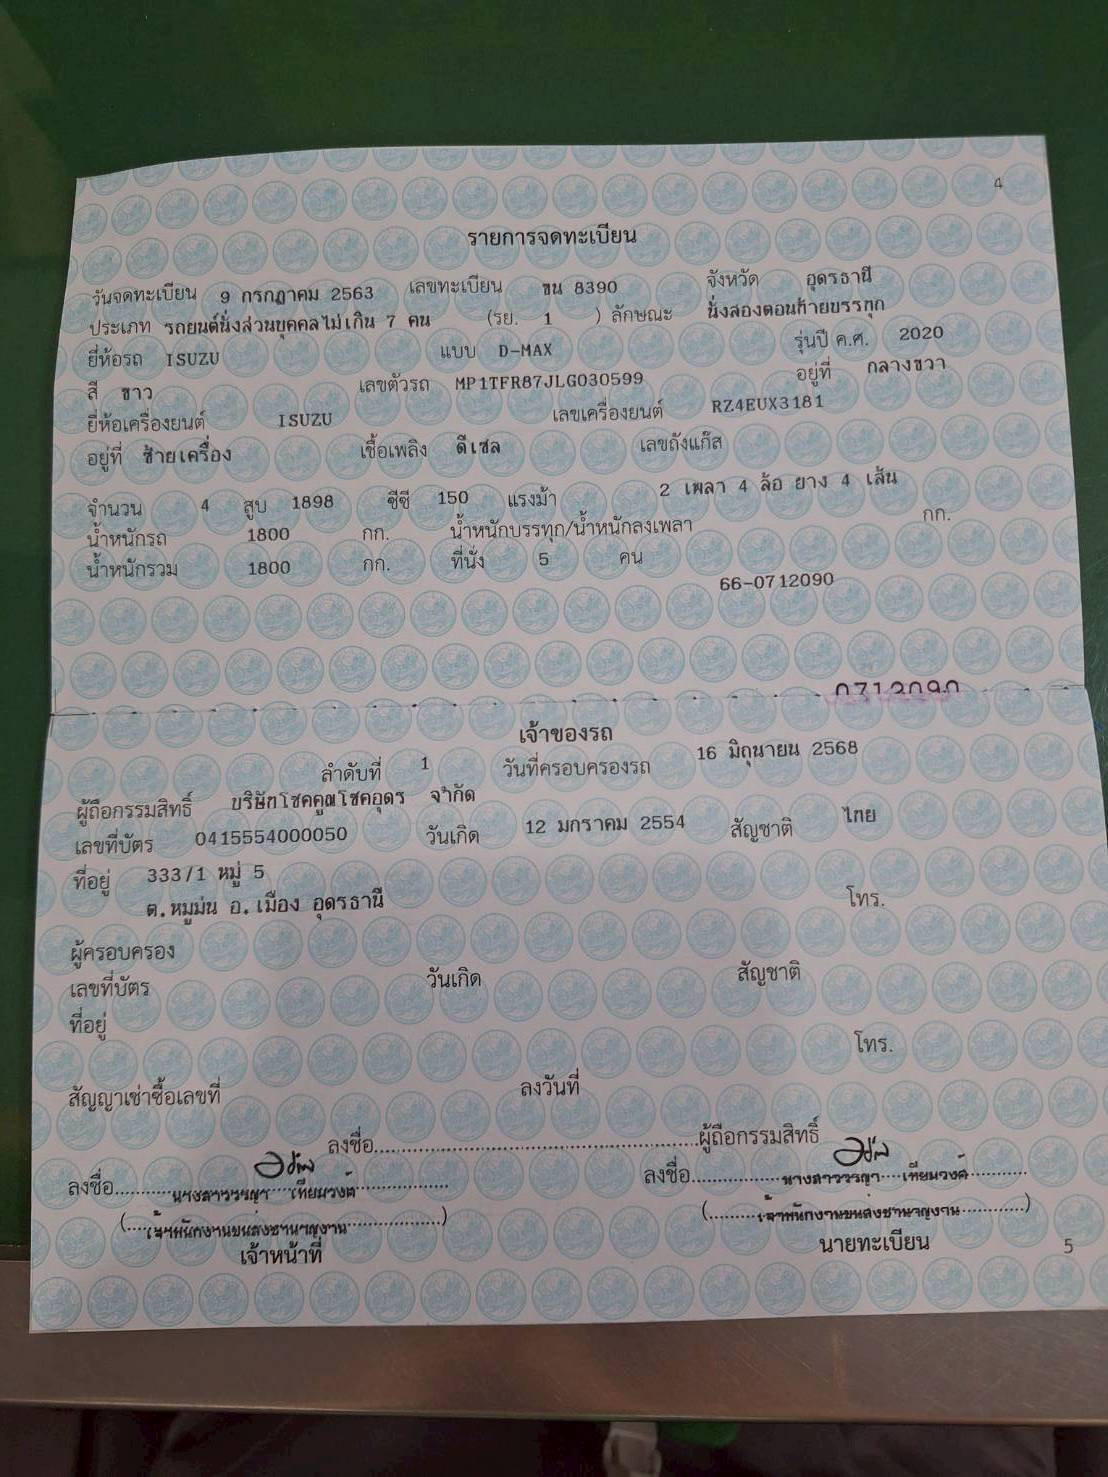 4
รายการจดทะเบียน
วันจดทะเบียน 9 กรกฎาคม 2563 เลขทะเบียน ขน 8390 จังหวัด อุดรธานี
ประเภท รถยนต์นั่งส่วนบุคคลไม่เกิน 7 คน (รย. 1 ) ลักษณะ นั่งสองตอนท้ายบรรทุก
ยี่ห้อรถ ISUZU แบบ D-MAX รุ่นปี ค.ศ. 2020
สี ขาว เลขตัวรถ MP1TFR87JLG030599 อยู่ที่ กลางขวา
ยี่ห้อเครื่องยนต์ ISUZU เลขเครื่องยนต์ RZ4EUX3181
อยู่ที่ ซ้ายเครื่อง เชื้อเพลิง ดีเซล เลขถังแก๊ส
จำนวน 4 สูบ 1898 ซีซี 150 แรงม้า 2 เพลา 4 ล้อ ยาง 4 เส้น
น้ำหนักรถ 1800 กก. น้ำหนักบรรทุก/น้ำหนักลงเพลา กก.
น้ำหนักรวม 1800 กก. ที่นั่ง 5 คน
66-0712090
0712090
เจ้าของรถ
ลำดับที่ 1 วันที่ครอบครองรถ 16 มิถุนายน 2568
ผู้ถือกรรมสิทธิ์ บริษัทโชคคูณโชคอุดร จำกัด
เลขที่บัตร 0415554000050 วันเกิด 12 มกราคม 2554 สัญชาติ ไทย
ที่อยู่ 333/1 หมู่ 5
ต.หมูม่น อ.เมือง อุดรธานี โทร.
ผู้ครอบครอง
เลขที่บัตร วันเกิด สัญชาติ
ที่อยู่
โทร.
สัญญาเช่าซื้อเลขที่ ลงวันที่
ลงชื่อ............................................................ผู้ถือกรรมสิทธิ์
ลงชื่อ..........นางสาววรญา เทียมวงค์.................. ลงชื่อ..................นางสาววรญา เทียมวงค์..........
(.....เจ้าพนักงานขนส่งชำนาญงาน..................) (..........เจ้าพนักงานขนส่งชำนาญงาน.............)
เจ้าหน้าที่ นายทะเบียน
5